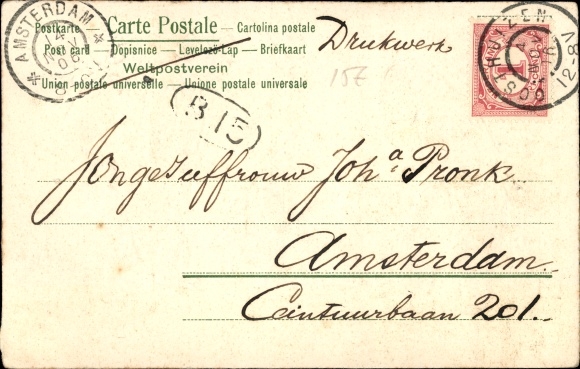 Postkarte Carte Postale — Cartolina postale
Post card — Dopisnice — Levelező-Lap — Briefkaart
Weltpostverein
Union postale universelle — Unione postale universale
Drukwerk
157
AMSTERDAM
HUIZEN
12-8V
B 15
Jongejuffrouw Joh.a Pronk
Amsterdam.
Ceintuurbaan 201.